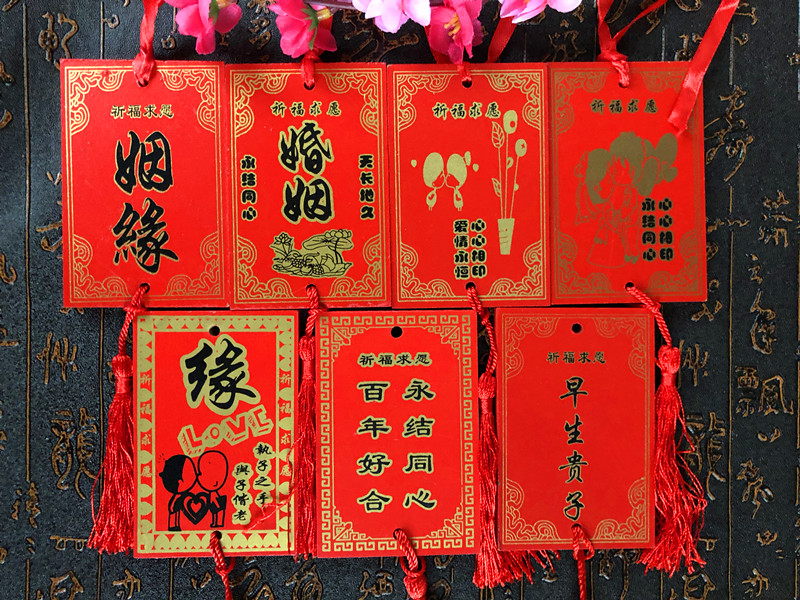 祈福求愿
姻
緣
祈福求愿
婚
姻
永结同心
天长地久
祈福求愿
爱情永恒
心心相印
祈福求愿
永结同心
心心相印
缘
LOVE
祈福求愿
祈福求愿
執子之手
與子偕老
祈福求愿
百年好合
永结同心
祈福求愿
早生贵子